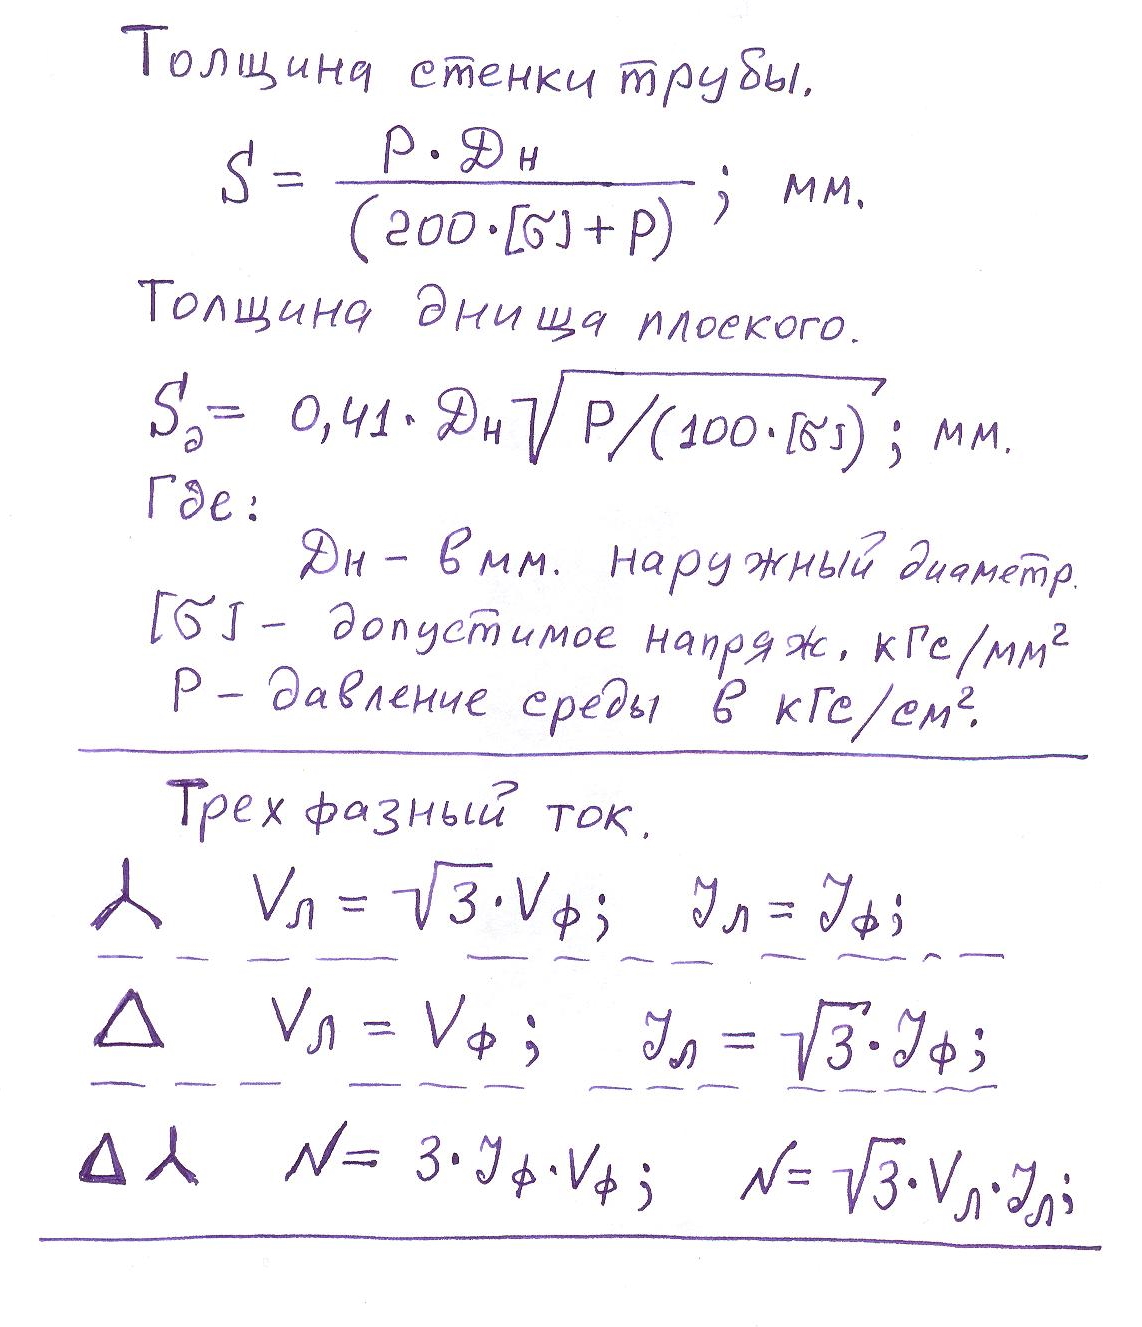 Толщина стенки трубы.
S = P · Дн / (200 · [σ] + P) ; мм.
Толщина днища плоского.
Sд = 0,41 · Дн √P/(100 · [σ]) ; мм.
Где:
Дн – в мм. наружный диаметр.
[σ] – допустимое напряж. кГс/мм²
P – давление среды в кГс/см².
Трех фазный ток.
Vл = √3 · Vф; Jл = Jф;
Δ Vл = Vф ; Jл = √3 · Jф;
Δ N = 3 · Jф · Vф ; N = √3 · Vл · Jл;